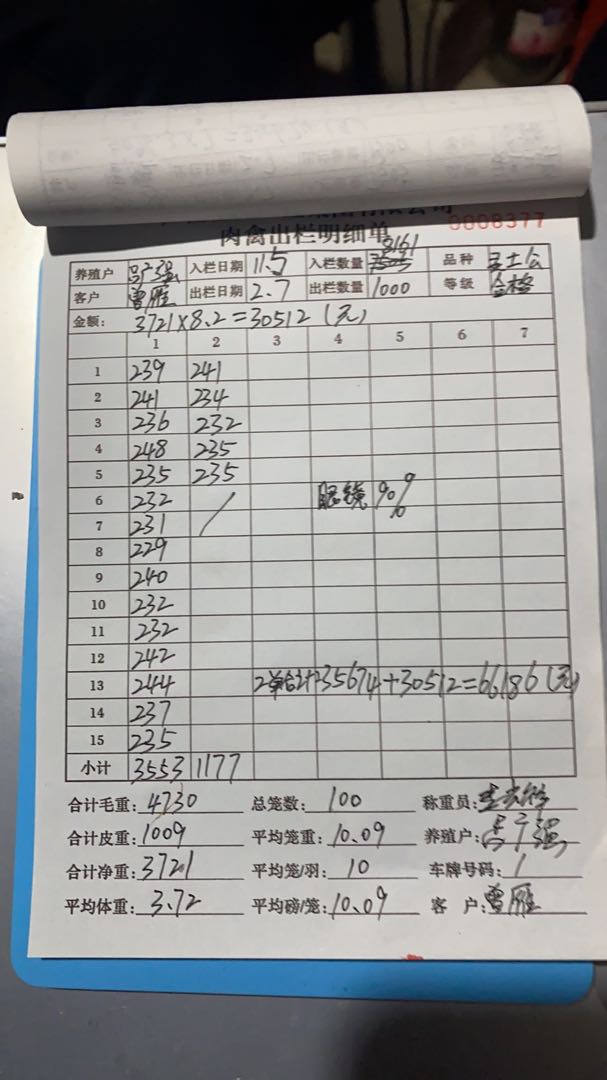 0008377
肉禽出栏明细单
养殖户 入栏日期 11.5 入栏数量 8161 品种 土公
客户 曾雁 出栏日期 2.7 出栏数量 1000 等级 合格
金额: 3721×8.2=30512(元)
1 2 3 4 5 6 7
1 239 241
2 241 234
3 236 232
4 248 235
5 235 235
6 232 / 眼镜 90%
7 231
8 229
9 240
10 232
11 232
12 242
13 244 2单合计35674+30512=66186(元)
14 237
15 235
小计 3553 1177
合计毛重: 4730 总笼数: 100 称重员:
合计皮重: 1009 平均笼重: 10.09 养殖户:
合计净重: 3721 平均笼/羽: 10 车牌号码: /
平均体重: 3.72 平均磅/笼: 10.09 客 户: 曾雁